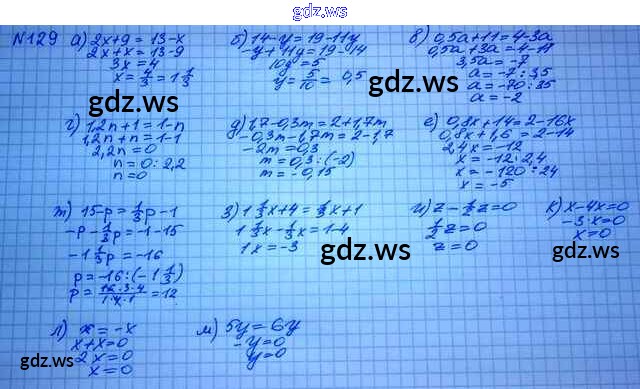 gdz.ws
N129 а) 2x+9 = 13-x
2x+x = 13-9
3x = 4
x = 4/3 = 1 1/3
б) 14-y = 19-11y
-y+11y = 19-14
10y = 5
y = 5/10 = 0,5
в) 0,5a+11 = 4-3a
0,5a+3a = 4-11
3,5a = -7
a = -7:3,5
a = -70:35
a = -2
gdz.ws
gdz.ws
г) 1,2n+1 = 1-n
1,2n+n = 1-1
2,2n = 0
n = 0:2,2
n = 0
д) 1,7-0,3m = 2+1,7m
-0,3m-1,7m = 2-1,7
-2m = 0,3
m = 0,3:(-2)
m = -0,15
е) 0,8x+14 = 2-1,6x
0,8x+1,6 = 2-14
2,4x = -12
x = -12:2,4
x = -120:24
x = -5
gdz.ws
gdz.ws
ж) 15-p = 1/3p-1
-p-1/3p = -1-15
-1 1/3p = -16
p = -16:(-1 1/3)
p = 16·3·4/1·4·1 = 12
з) 1 1/3x+4 = 1/3x+1
1 1/3x-1/3x = 1-4
1x = -3
и) z-1/2z = 0
1/2z = 0
z = 0
к) x-4x = 0
-3x = 0
x = 0
gdz.ws
gdz.ws
л) x = -x
x+x = 0
2x = 0
x = 0
м) 5y = 6y
-y = 0
y = 0
gdz.ws
gdz.ws
gdz.ws